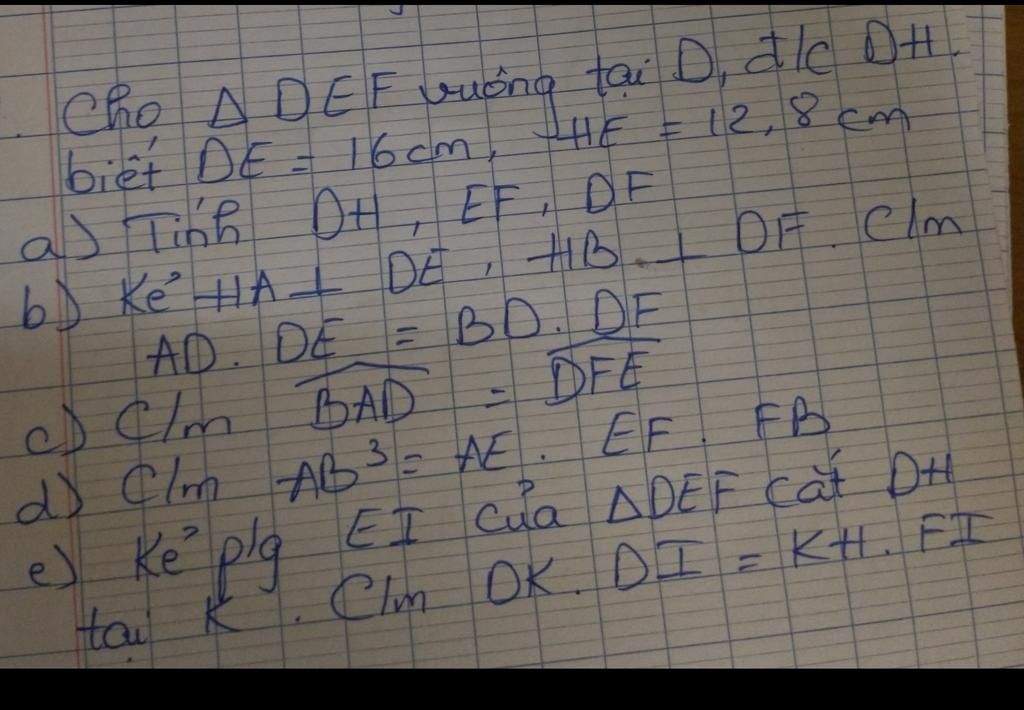 Cho Δ DEF vuông tại D, đ/c DH.
biết DE = 16cm, HE = 12,8 cm
a) Tính DH, EF, DF
b) Kẻ HA ⊥ DE, HB ⊥ DF. C/m
AD. DE = BD. DF
c) C/m \widehat{BAD} = \widehat{DFE}
d) C/m AB³ = AE. EF. FB
e) Kẻ p/g EI của ΔDEF cắt DH
tại K. C/m DK. DI = KH. FI